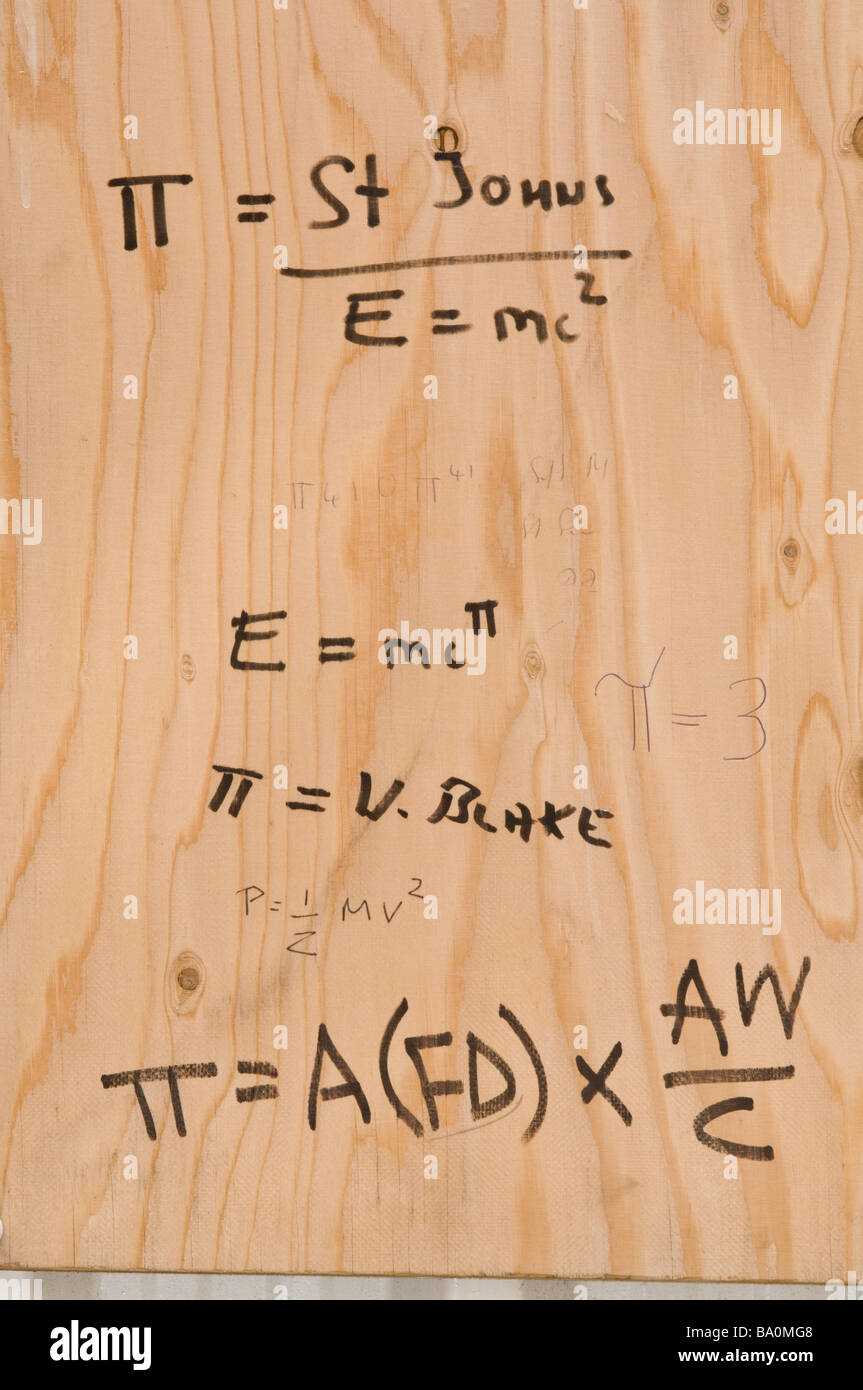 π = St Johns
E = mc²
π410 π⁴¹
E = mc^π
π = 3
π = V. BLAKE
P = 1/2 MV²
π = A(FD) × AW/C
alamy
Image ID: BA0MG8
www.alamy.com